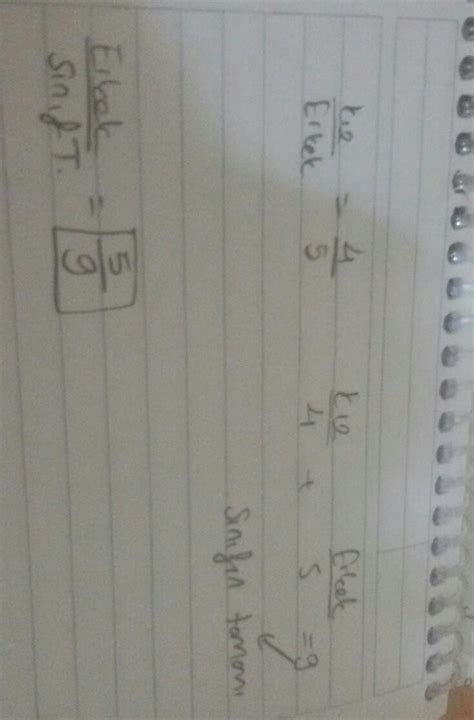 Kız/Erkek = 4/5
Kız Erkek
4 + 5 = 9
Sınıfın tamamı
Erkek/Sınıf T. = 5/9